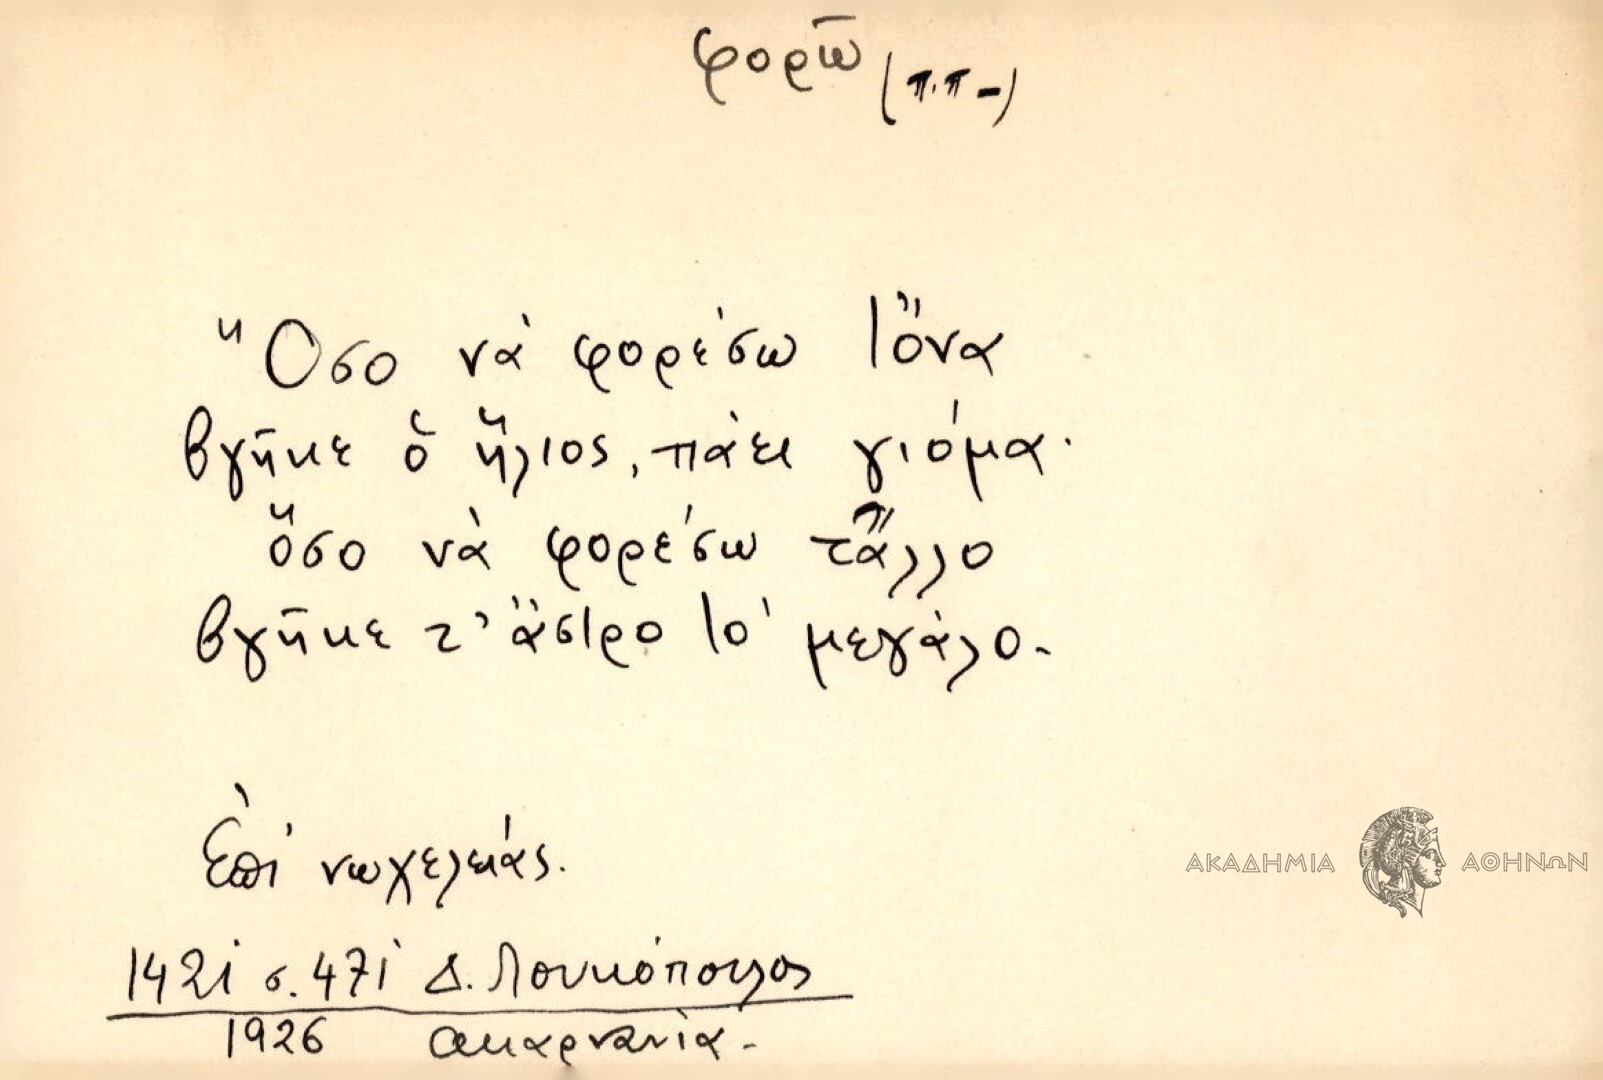 φορῶ (π.π-)
Ὅσο νὰ φορέσω τὄνα
βγῆκε ὁ ἥλιος, πάει γιόμα·
ὅσο νὰ φορέσω τἆλλο
βγῆκε τ' ἄστρο τὸ μεγάλο.
Ἐπὶ νωχελειάς.
1421 σ. 471 Δ. Λουκόπουλος
1926 Ακαρνανία.
ΑΚΑΔΗΜΙΑ ΑΘΗΝΩΝ